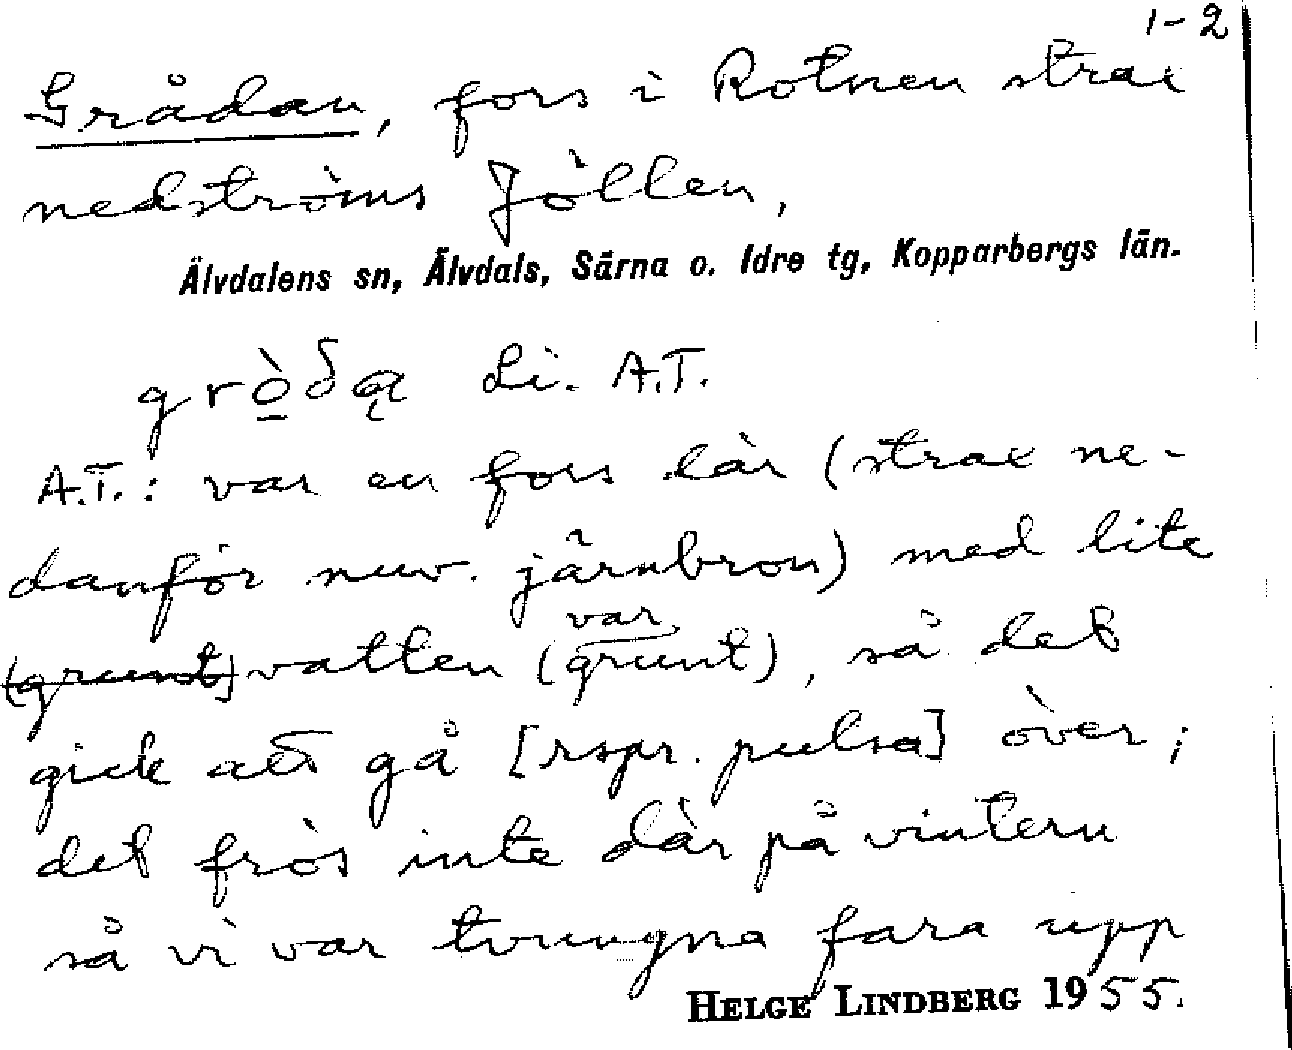 1-2
Grådan, fors i Rotnen strax
nedströms Jöllen,
Älvdalens sn, Älvdals, Särna o. Idre tg, Kopparbergs län.
grò̠δą Li. A.T.
A.T.: var en fors där (strax ne-
danför nuv. järnbron) med lite
(grunt) vatten (var grunt), så det
gick att gå [rspr. pulsa] över;
det frös inte där på vintern
så vi var tvungna fara upp
HELGE LINDBERG 1955.